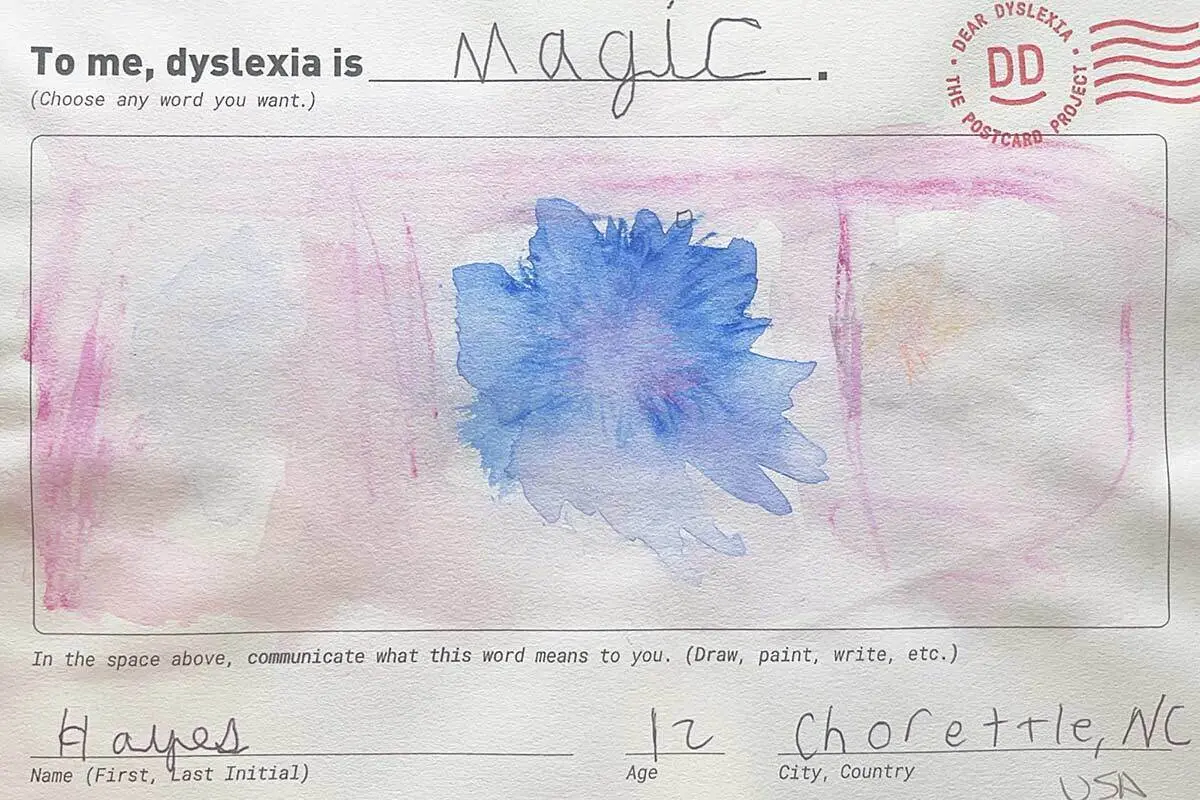 To me, dyslexia is Magic.
(Choose any word you want.)
DEAR DYSLEXIA • THE POSTCARD PROJECT •
DD
In the space above, communicate what this word means to you. (Draw, paint, write, etc.)
Hayes 12 Chorettle, NC
Name (First, Last Initial) Age City, Country
USA